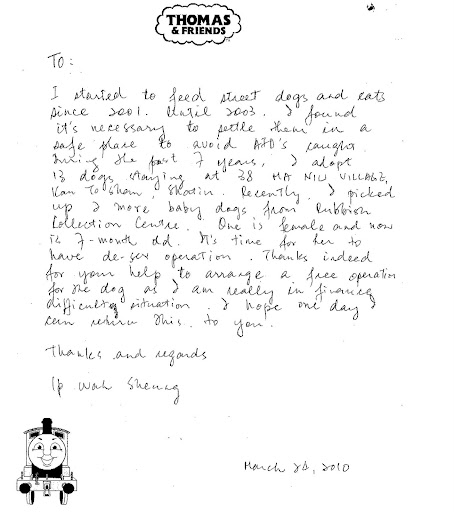 THOMAS
& FRIENDS
To:
I started to feed street dogs and cats
since 2001. Until 2003. I found
it's necessary to settle them in a
safe place to avoid AFD's caught.
During the past 7 years, I adopt
13 dogs staying at 38 MA NIU VILLAGE,
Kan To Shan, Shatin. Recently, I picked
up 2 more baby dogs from Rubbish
Collection Centre. One is female and now
is 7-month old. It's time for her to
have de-sex operation. Thanks indeed
for your help to arrange a free operation
for the dog as I am really in finance
difficulty situation. I hope one day I
can return this to you.
Thanks and regards
Ip Wah Sheung
March 24, 2010